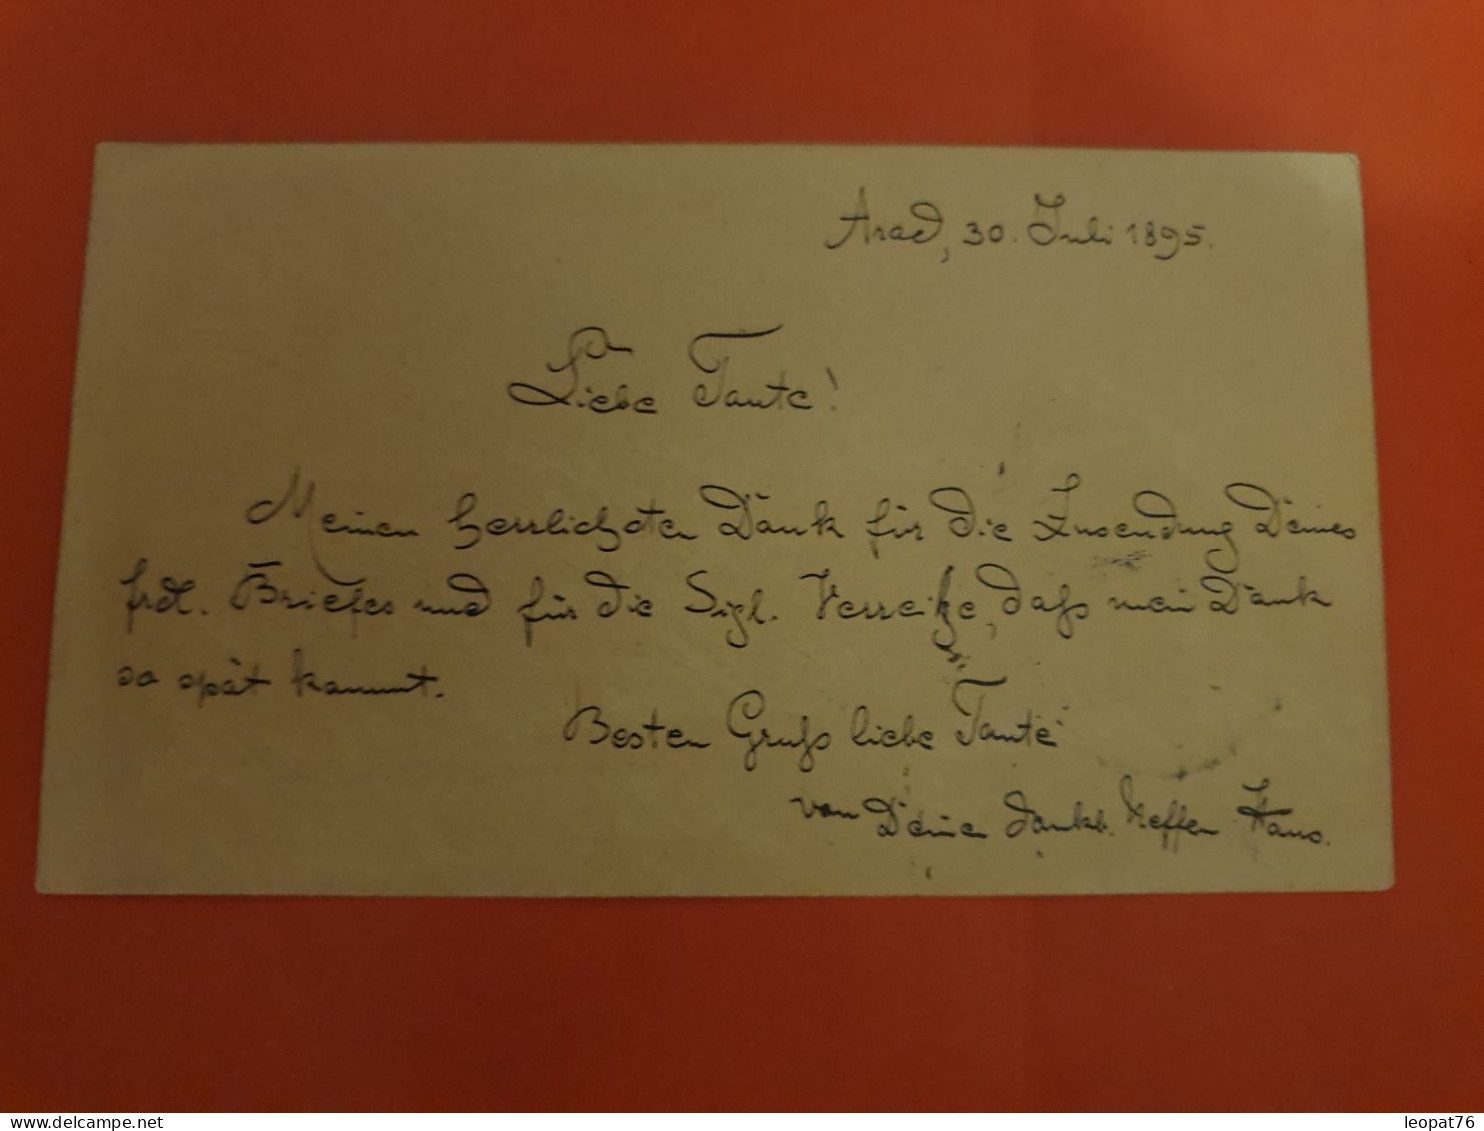 Arad, 30. Juli 1895.
Liebe Tante!
Meinen herrlichsten Dank für die Zusendung Deines
frdl. Briefes und für die Sigl. Verzeihe, daß mein Dank
so spät kommt.
Besten Gruß liebe Tante
von Deinen dankb. Neffen Hans.
www.delcampe.net
leopat76